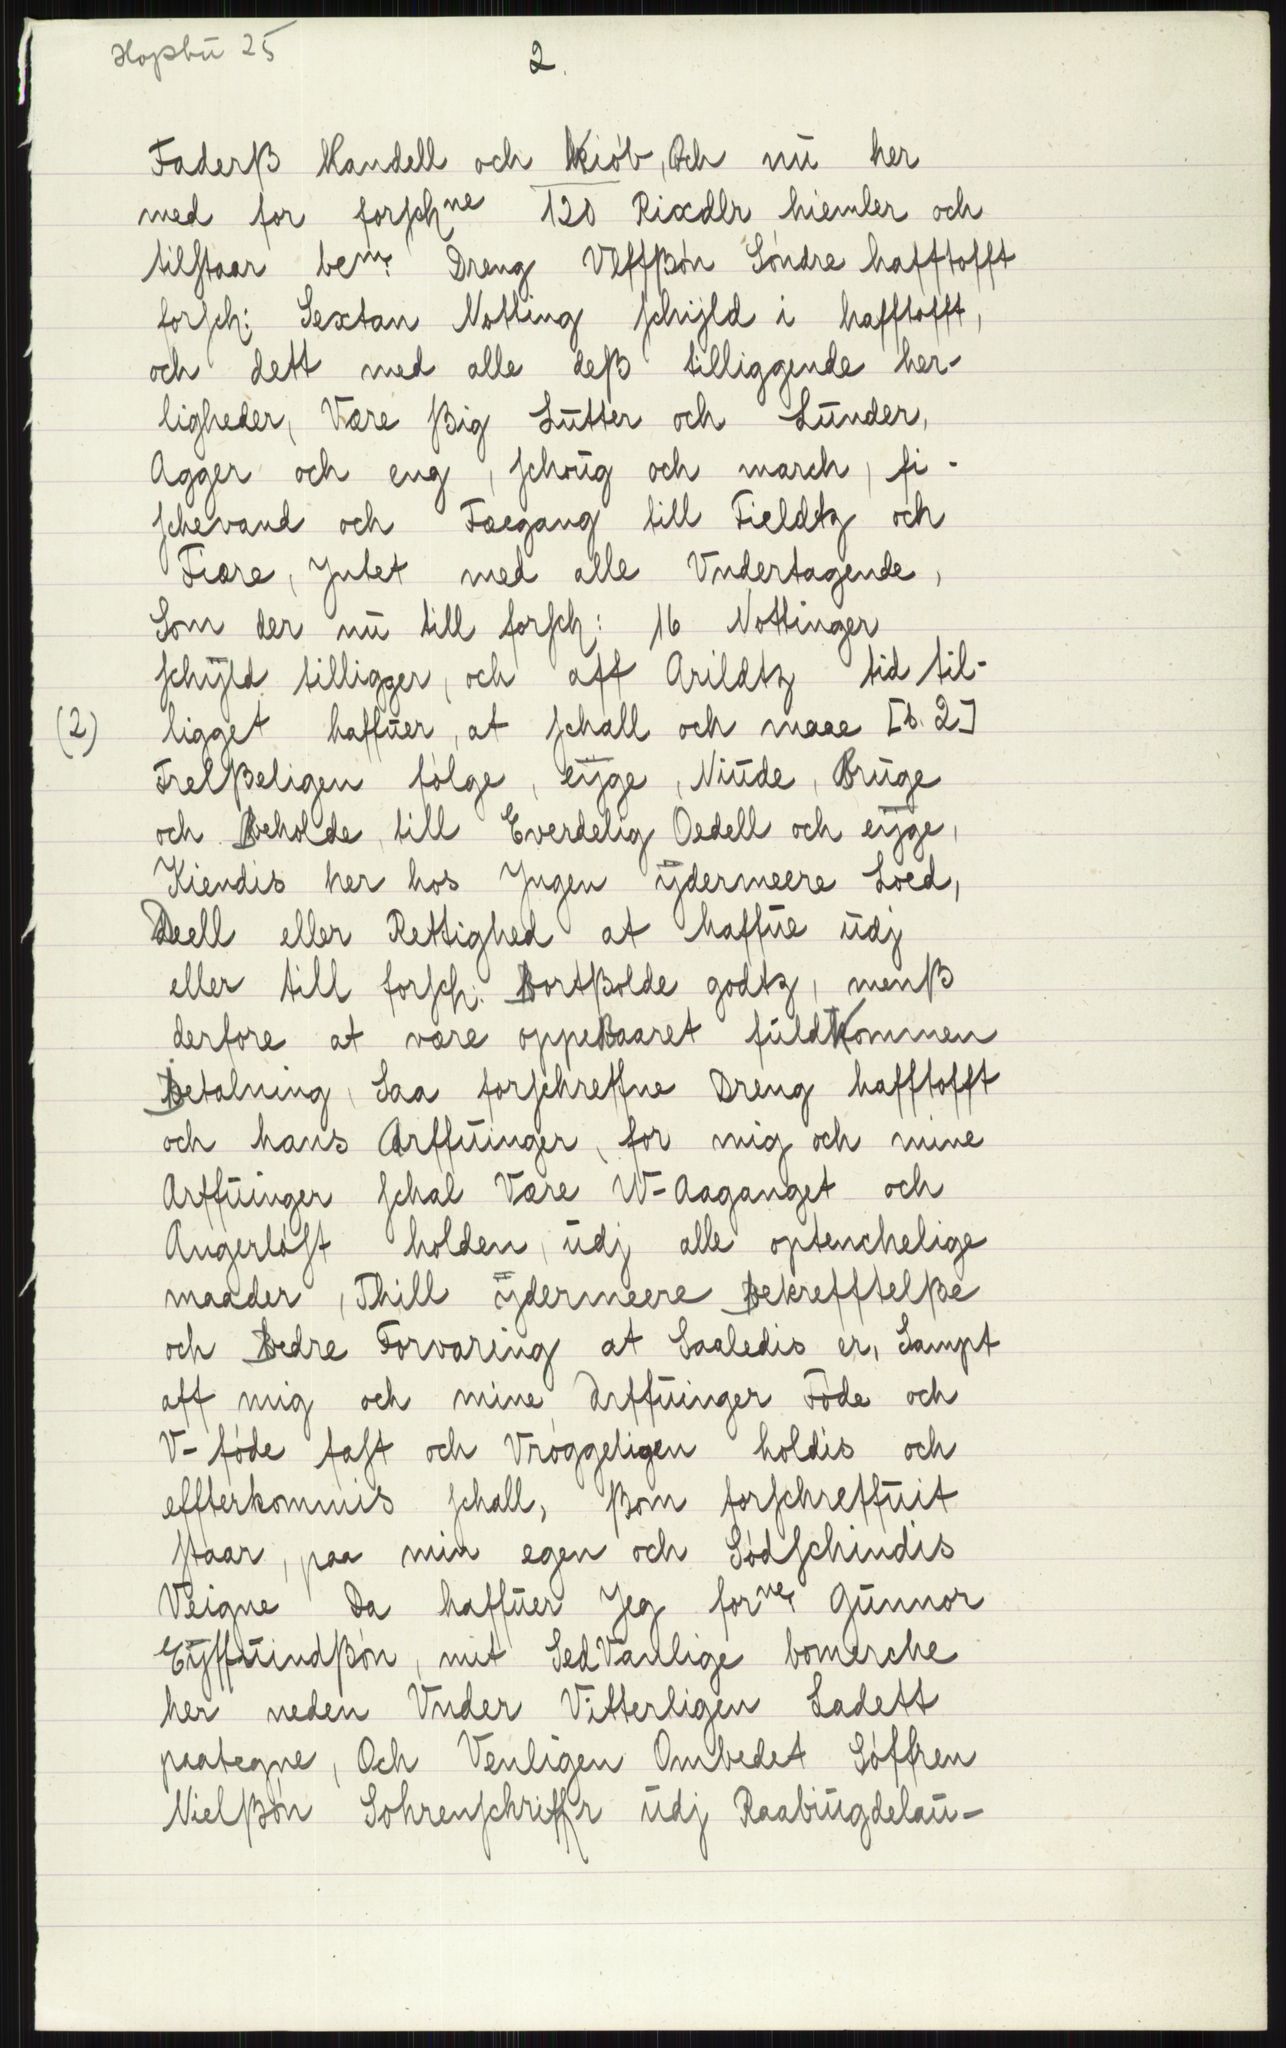 Hopstū 25
2.
Faderß Handell och Kiöb, Och nū her
med for forsch^ne 120 Rixdlr hiemler och
tilstaar bem^te Dreng Vlffßön Söndre hafftofft
forsch: Sextan Notting schyld i hafftofft,
och dett med alle deß tilliggende her-
ligheder, Være ßig Lutter och Lunder,
Agger och eng, schoūg och march, fi-
schevand och Fægang till Fieldtz och
Fiære, Jntet med alle Vndertagende,
Som der nū till forsch: 16 Nottinger
schyld tilligger, och aff Arildtz tid til-
(2) ligget haffūer, at schall och maae [s. 2]
Frelßeligen følge, eÿge, Niūde, Brūge
och Beholde till Everdelig Oedell och eÿge,
Kiendis her hos Jngen ÿdermeere Loed,
Deell eller Rettighed at haffūe ūdj
eller till forsch. Bortßolde godtz, menß
derfore at være oppeBaaret fūldtKommen
Betalning, Saa forschreffne Dreng hafftofft
och hans Arffūinger, for mig och mine
Arffūinger schal Være W-Aaganget och
Angerløst holden, ūdj alle optenchelige
maader, Thill ÿdermeere Bekrefftelße
och Bedre Forvaring at Saaledis er, Sampt
aff mig och mine Arffūinger Føde och
V-føde fast och Vrøggeligen holdis och
effterkommis schall, ßom forschreffūit
staar, paa min egen och Sødschindis
Veigne Da haffūer Jeg for^ne Gūnnor
Eÿffūindßøn, mit SedVanlige bomerche
her neden Vnder Vitterligen Ladett
paategne, Och Venligen Ombedet Søffren
Nielßøn Sohrenschriffr ūdj Raabiūgdelaū-